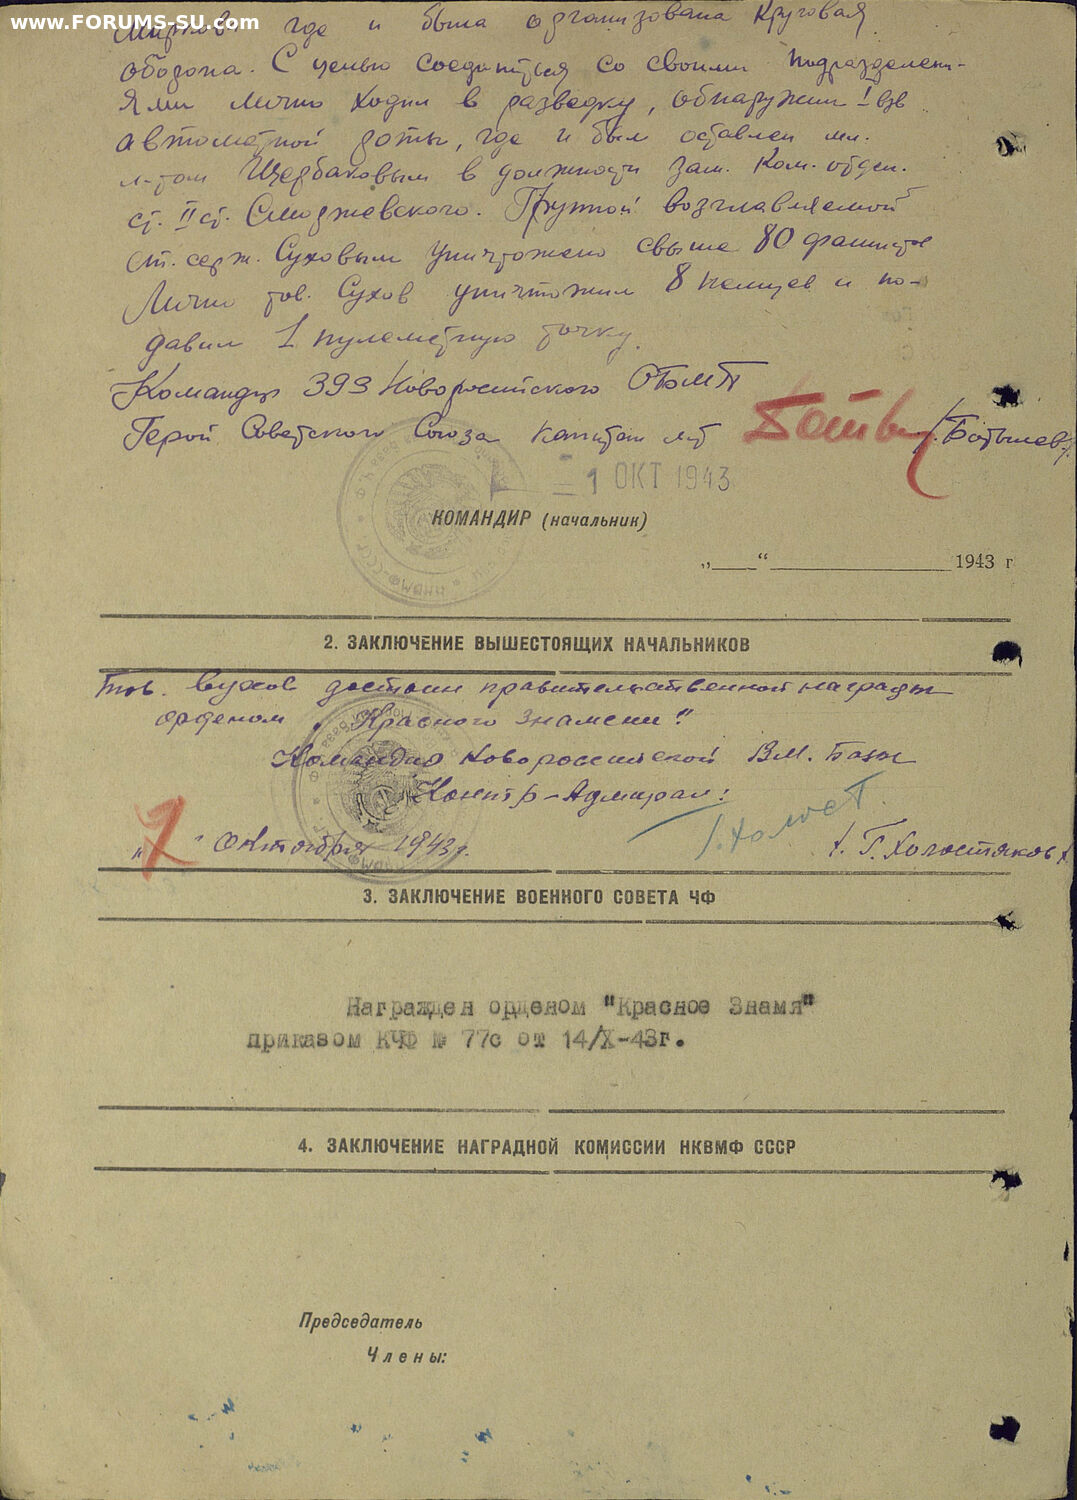 www.FORUMS-SU.com
где и была организована круговая
оборона. С целью соединиться со своими подразделени-
ями лично ходил в разведку, обнаружил I взв
автоматной роты, где и был оставлен мл.
л-том Щербаковым в должности зам. ком. отдел.
ст. II ст. Сморжевского. Группой возглавляемой
ст. серж. Суховым уничтожено свыше 80 фашистов
Лично тов. Сухов уничтожил 8 немцев и по-
давил 1 пулеметную точку.
Командир 393 Новороссийского ОБМП
Герой Советского Союза капитан л-т /Ботылев/.
- 1 ОКТ 1943
КОМАНДИР (начальник)
„___“ ______________ 1943 г
2. ЗАКЛЮЧЕНИЕ ВЫШЕСТОЯЩИХ НАЧАЛЬНИКОВ
Тов. Сухов достоин правительственной награды
орденом „Красного Знамени“
Командир Новороссийской ВМ. Базы
Контр-Адмирал:
„7“ октября 1943 г. /. Г. Холостяков /
3. ЗАКЛЮЧЕНИЕ ВОЕННОГО СОВЕТА ЧФ
Награжден орденом "Красное Знамя"
приказом КЧФ № 77с от 14/X-43г.
4. ЗАКЛЮЧЕНИЕ НАГРАДНОЙ КОМИССИИ НКВМФ СССР
Председатель
Члены: